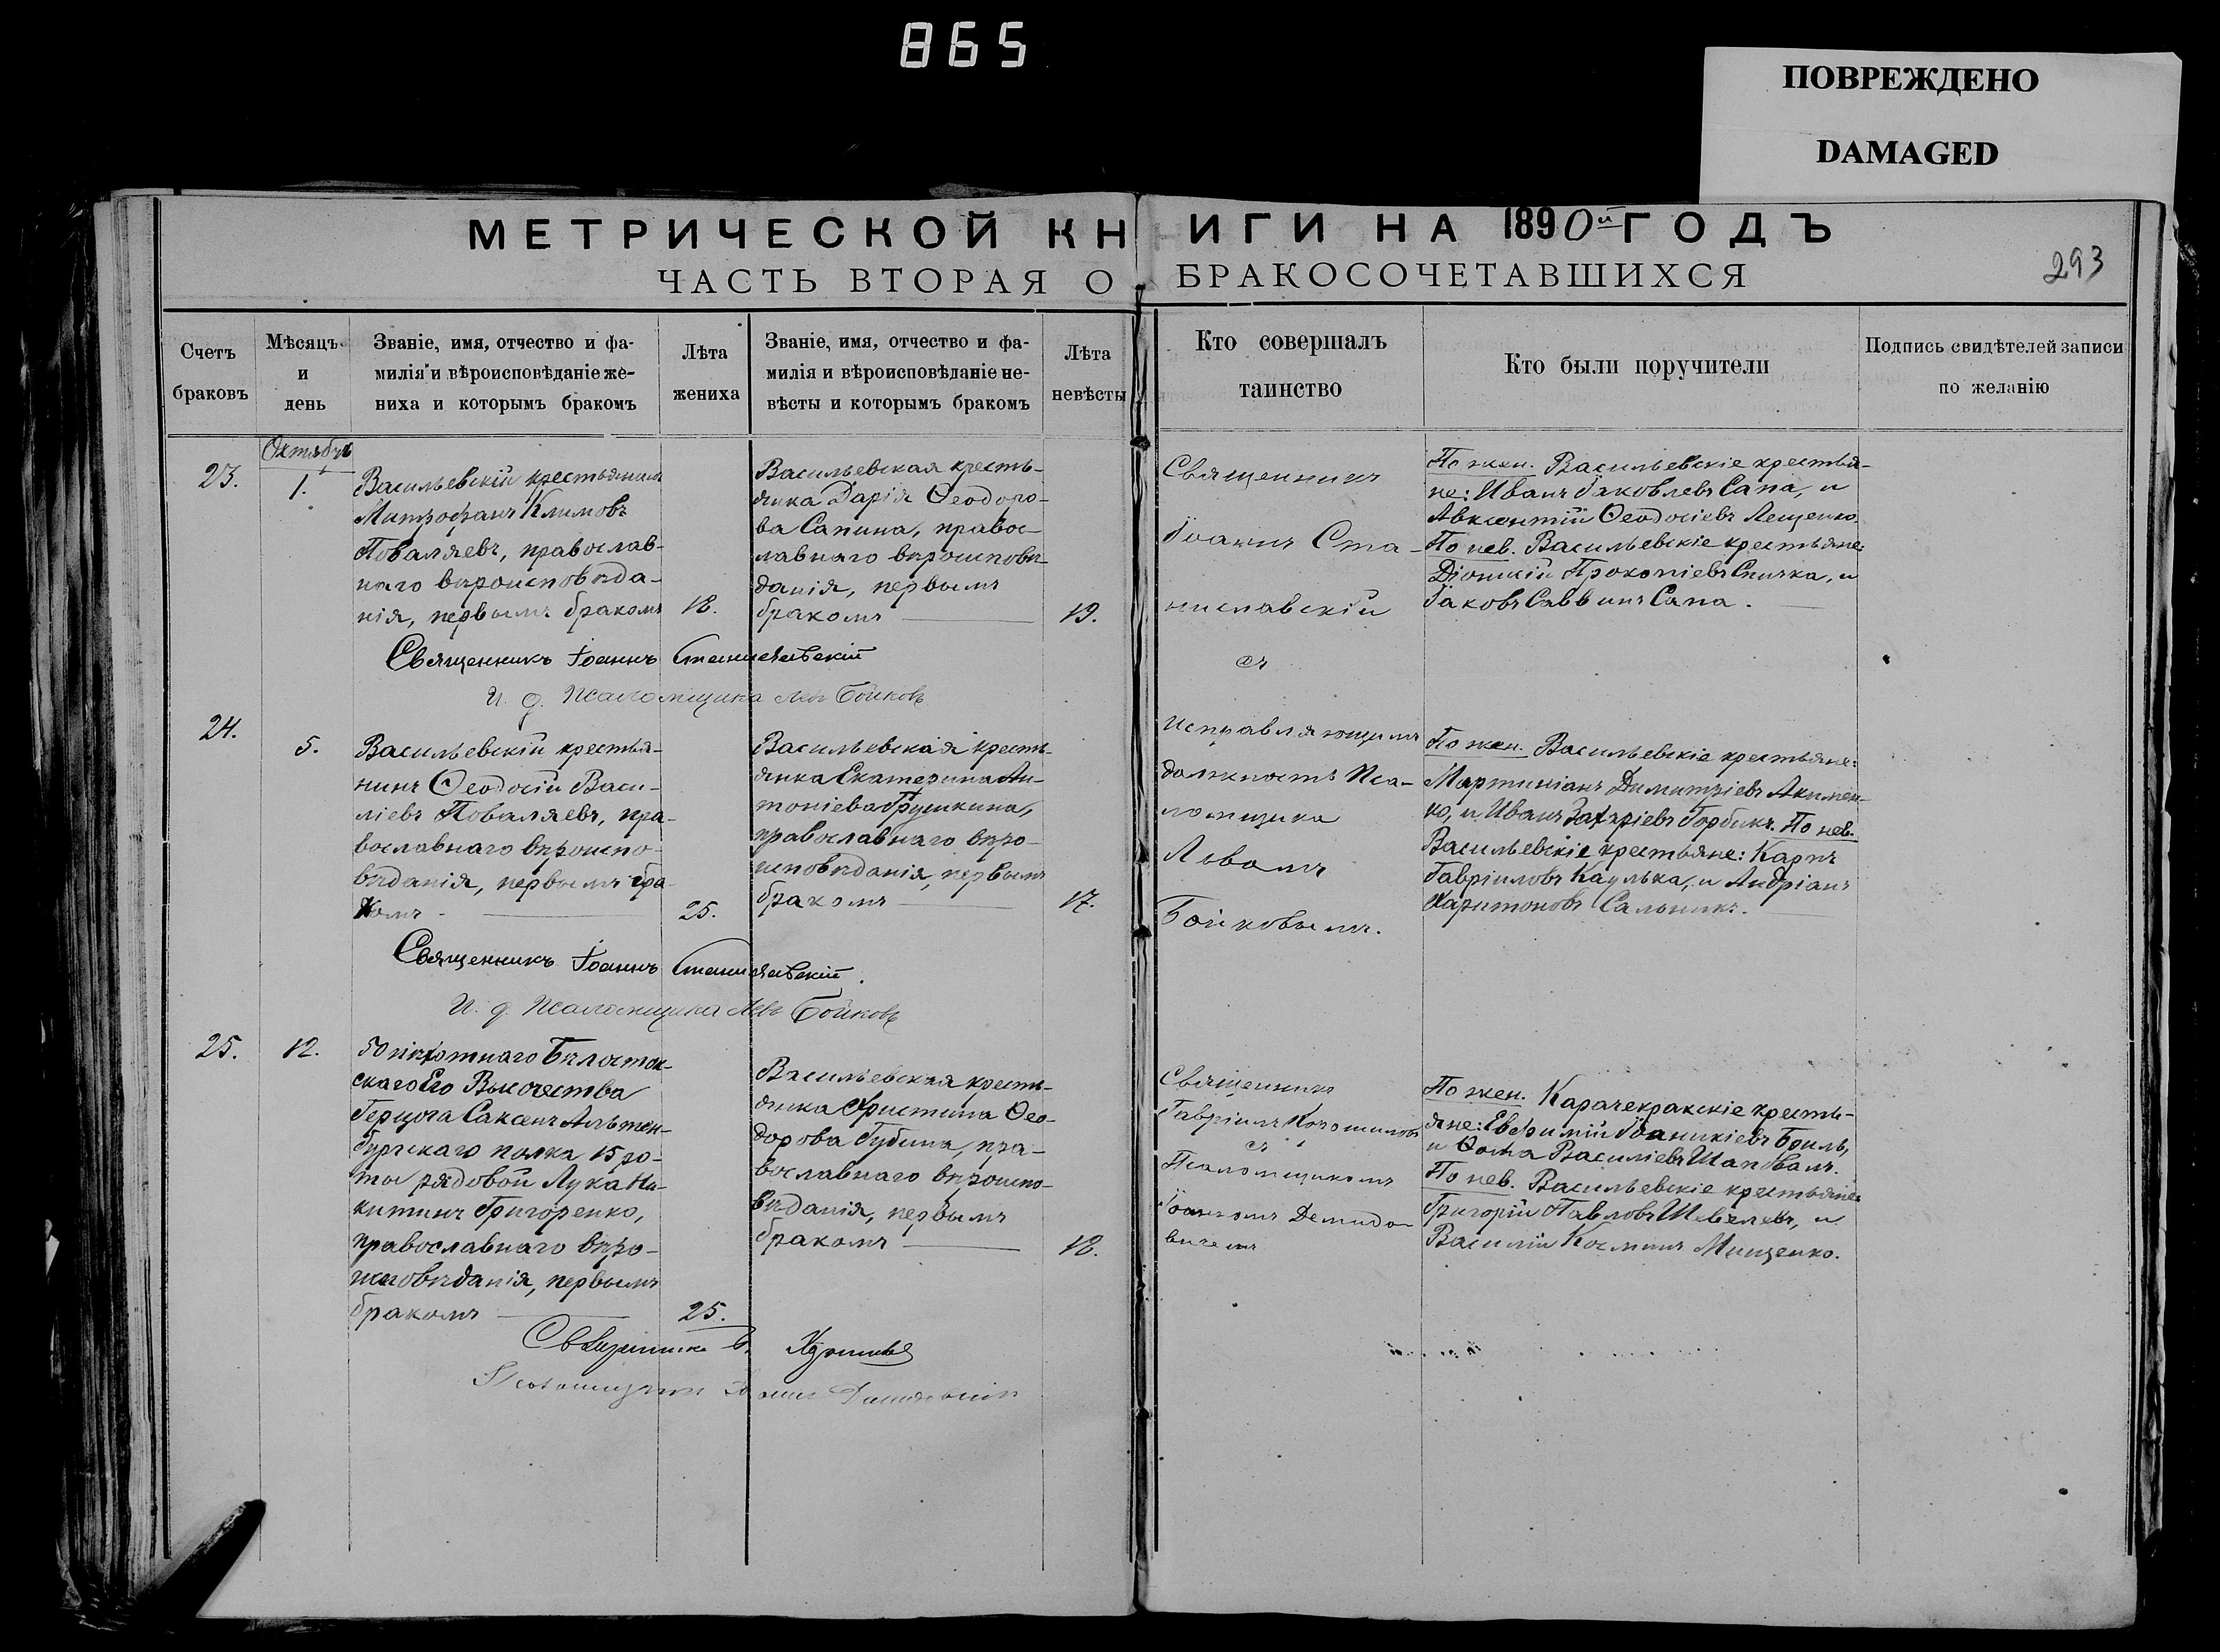 865
ПОВРЕЖДЕНО
DAMAGED
МЕТРИЧЕСКОЙ КНИГИ НА 1890й ГОДЪ
ЧАСТЬ ВТОРАЯ О БРАКОСОЧЕТАВШИХСЯ
293
Счетъ
браковъ
Мѣсяцъ
и
день
Званіе, имя, отчество и фа-
милія и вѣроисповѣданіе же-
ниха и которымъ бракомъ
Лѣта
жениха
Званіе, имя, отчество и фа-
милія и вѣроисповѣданіе не-
вѣсты и которымъ бракомъ
Лѣта
невѣсты
Кто совершалъ
таинство
Кто были поручители
Подпись свидѣтелей записи
по желанію
23.
Октябрь
1.
Васильевскій крестьянинъ
Митрофанъ Климовъ
Поваляевъ, православ-
наго вѣроисповѣда-
нія, первымъ бракомъ
18.
Васильевская кресть-
янка Дарія Ѳеодоро-
ва Сапина, правос-
лавнаго вѣроисповѣ-
данія, первымъ
бракомъ
19.
Священникъ
Іоаннъ Ста-
ниславскій
съ
исправляющимъ
должность Пса-
ломщика
Львомъ
Бойковымъ.
По жен. Васильевскіе крестья-
не: Иванъ Іаковлевъ Сапа, и
Авксентій Ѳеодосіевъ Лещенко.
По нев. Васильевскіе крестьяне:
Діонисій Прокопіевъ Спичка, и
Іаковъ Саввинъ Сапа.
Священникъ Іоаннъ Станиславскій
И. д. Псаломщика Левъ Бойковъ
24.
5.
Васильевскій крестья-
нинъ Ѳеодосій Васи-
ліевъ Поваляевъ, пра-
вославнаго вѣроиспо-
вѣданія, первымъ бра-
комъ
25.
Васильевская кресть-
янка Екатерина Ан-
тоніева Грушкина,
православнаго вѣро-
исповѣданія, первымъ
бракомъ
17.
По жен. Васильевскіе крестьяне:
Мартиніанъ Димитріевъ Акимен-
ко, и Иванъ Захаріевъ Горбикъ. По нев.
Васильевскіе крестьяне: Карпъ
Гавріиловъ Каулька, и Андріанъ
Харитоновъ Сальникъ.
Священникъ Іоаннъ Станиславскій.
И. д. Псаломщика Левъ Бойковъ
25.
12.
50 пѣхотнаго Бѣлосток-
скаго Его Высочества
Герцога Саксенъ Альтен-
бургскаго полка 15 ро-
ты рядовой Лука Ни-
китинъ Григоренко,
православнаго вѣро-
исповѣданія, первымъ
бракомъ
25.
Васильевская кресть-
янка Христина Ѳео-
дорова Губина, пра-
вославнаго вѣроиспо-
вѣданія, первымъ
бракомъ
18.
Священникъ
Гавріилъ
съ
Псаломщикомъ
Іоанномъ Демидо
вичемъ
По жен. Карачекракскіе кресть-
яне: Евѳимій Іоанникіевъ Бриль,
и Ѳома Василіевъ Шаповалъ.
По нев. Васильевскіе крестьяне:
Григорій Павловъ Шевелевъ, и
Василій Космынъ Мищенко.
Священникъ
Псаломщикъ